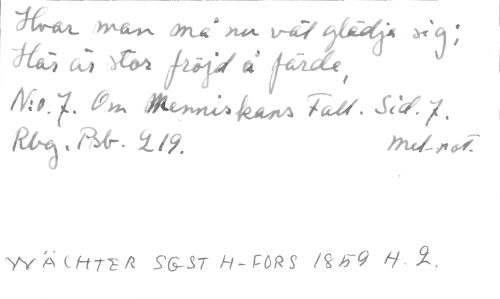 Hvar man må nu väl glädja sig;
Här är stor fröjd å färde,
N:o. 7. Om Menniskans Fall. Sid. 7.
Rbg. Psb. 219. Mel-not.
WÄCHTER SGST H-FORS 1859 H. 2.